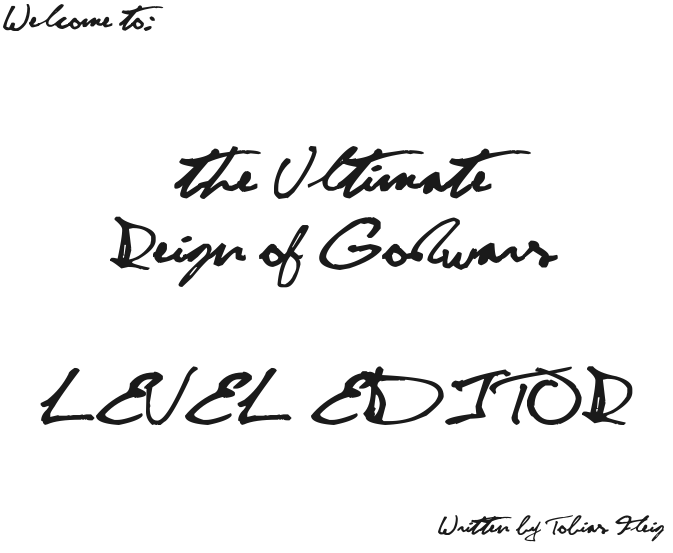 Welcome to:
the Ultimate
Reign of Godwars
LEVEL EDITOR
Written by Tobias